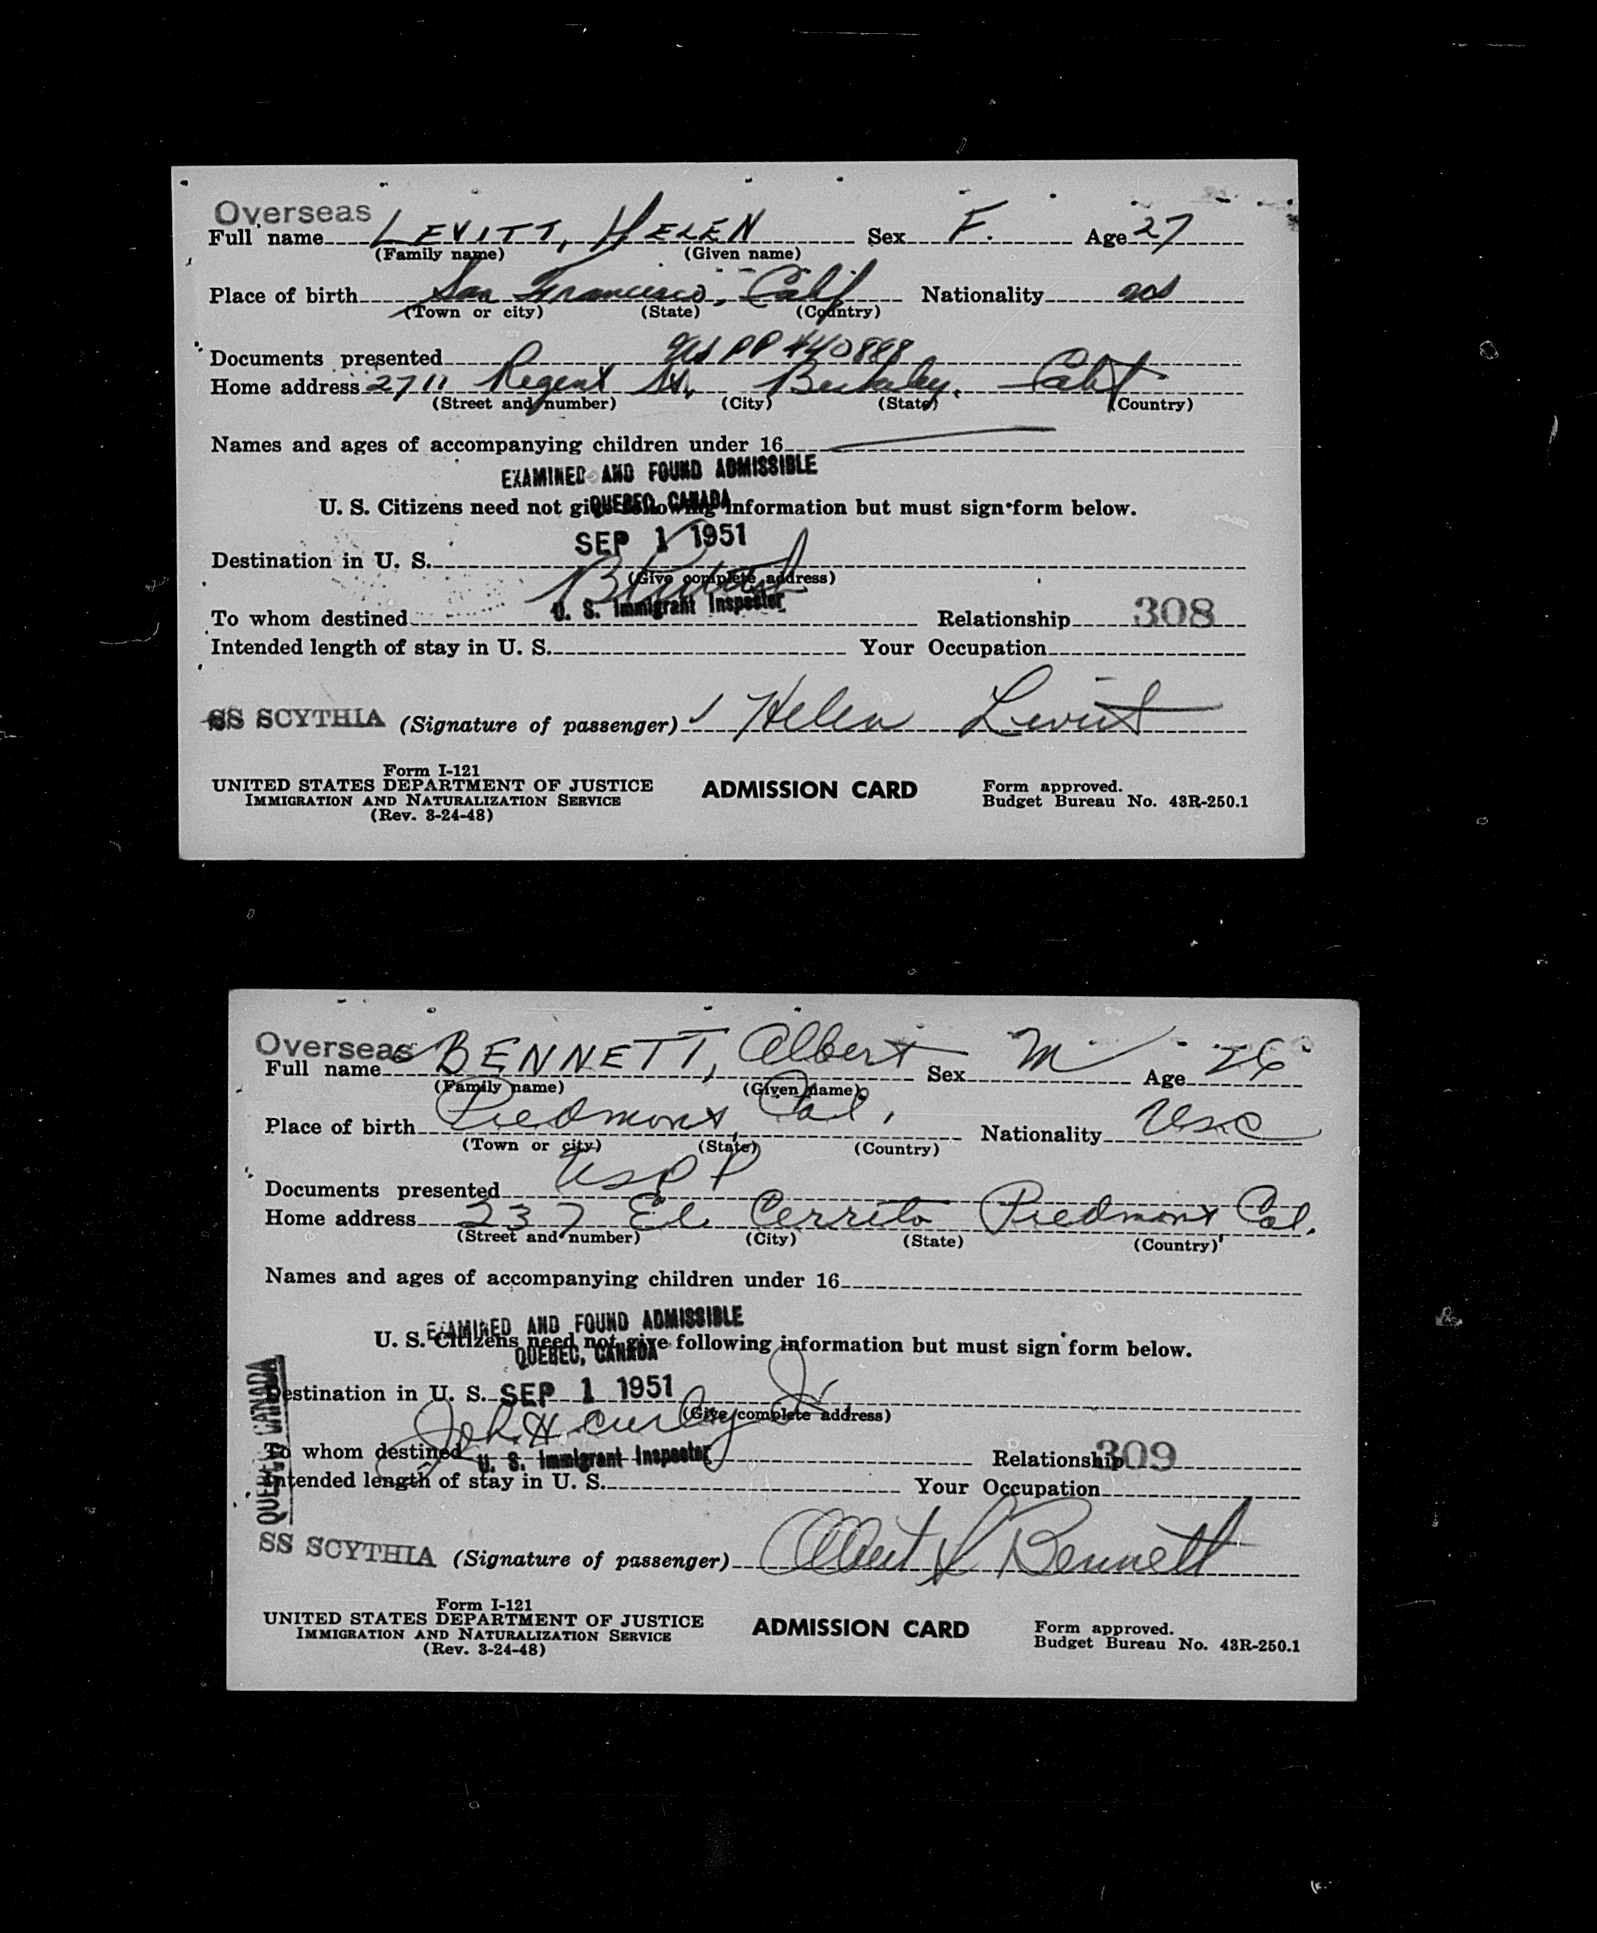 Overseas
Full name LEVITT, HELEN Sex F. Age 27
(Family name) (Given name)
Place of birth San Francisco, Calif Nationality
(Town or city) (State) (Country)
Documents presented US PP 440888
Home address 2711 Regent St, Berkeley, Calif
(Street and number) (City) (State) (Country)
Names and ages of accompanying children under 16
EXAMINED AND FOUND ADMISSIBLE
QUEBEC, CANADA
U. S. Citizens need not give following information but must sign form below.
SEP 1 1951
Destination in U. S.
(Give complete address)
U. S. Immigrant Inspector
To whom destined Relationship 308
Intended length of stay in U. S. Your Occupation
SS SCYTHIA (Signature of passenger) Helen Levitt
Form I-121
UNITED STATES DEPARTMENT OF JUSTICE ADMISSION CARD Form approved.
IMMIGRATION AND NATURALIZATION SERVICE Budget Bureau No. 43R-250.1
(Rev. 3-24-48)
Overseas
Full name BENNETT, Albert Sex M Age 26
(Family name) (Given name)
Place of birth Piedmont, Cal. Nationality USC
(Town or city) (State) (Country)
Documents presented USPP
Home address 237 El Cerrito Piedmont Cal.
(Street and number) (City) (State) (Country)
Names and ages of accompanying children under 16
EXAMINED AND FOUND ADMISSIBLE
U. S. Citizens need not give following information but must sign form below.
QUEBEC, CANADA
Destination in U. S. SEP 1 1951
(Give complete address)
John H. Curley Jr
To whom destined Relationship 309
U. S. Immigrant Inspector
Intended length of stay in U. S. Your Occupation
QUEBEC CANADA
SS SCYTHIA (Signature of passenger) Albert S Bennett
Form I-121
UNITED STATES DEPARTMENT OF JUSTICE ADMISSION CARD Form approved.
IMMIGRATION AND NATURALIZATION SERVICE Budget Bureau No. 43R-250.1
(Rev. 3-24-48)